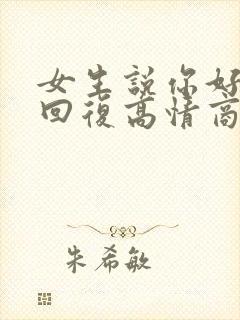 女生說你好
回復高情商
朱希敏